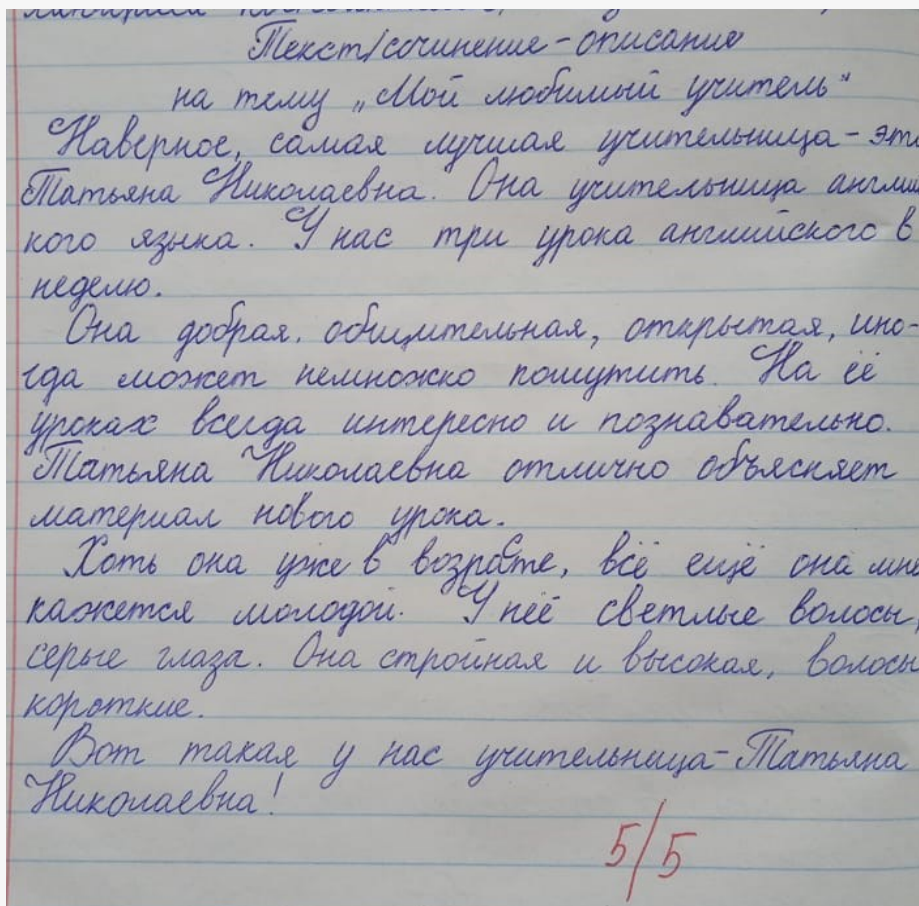 Текст/сочинение-описание
на тему „Мой любимый учитель“
Наверное, самая лучшая учительница - это
Татьяна Николаевна. Она учительница англий
кого языка. У нас три урока английского в
неделю.
Она добрая. общительная, открытая, ино-
гда может немножко пошутить. На её
уроках всегда интересно и познавательно.
Татьяна Николаевна отлично объясняет
материал нового урока.
Хоть она уже в возрасте, всё ещё она мне
кажется молодой. У неё светлые волосы,
серые глаза. Она стройная и высокая, волосы
короткие.
Вот такая у нас учительница - Татьяна
Николаевна!
5/5